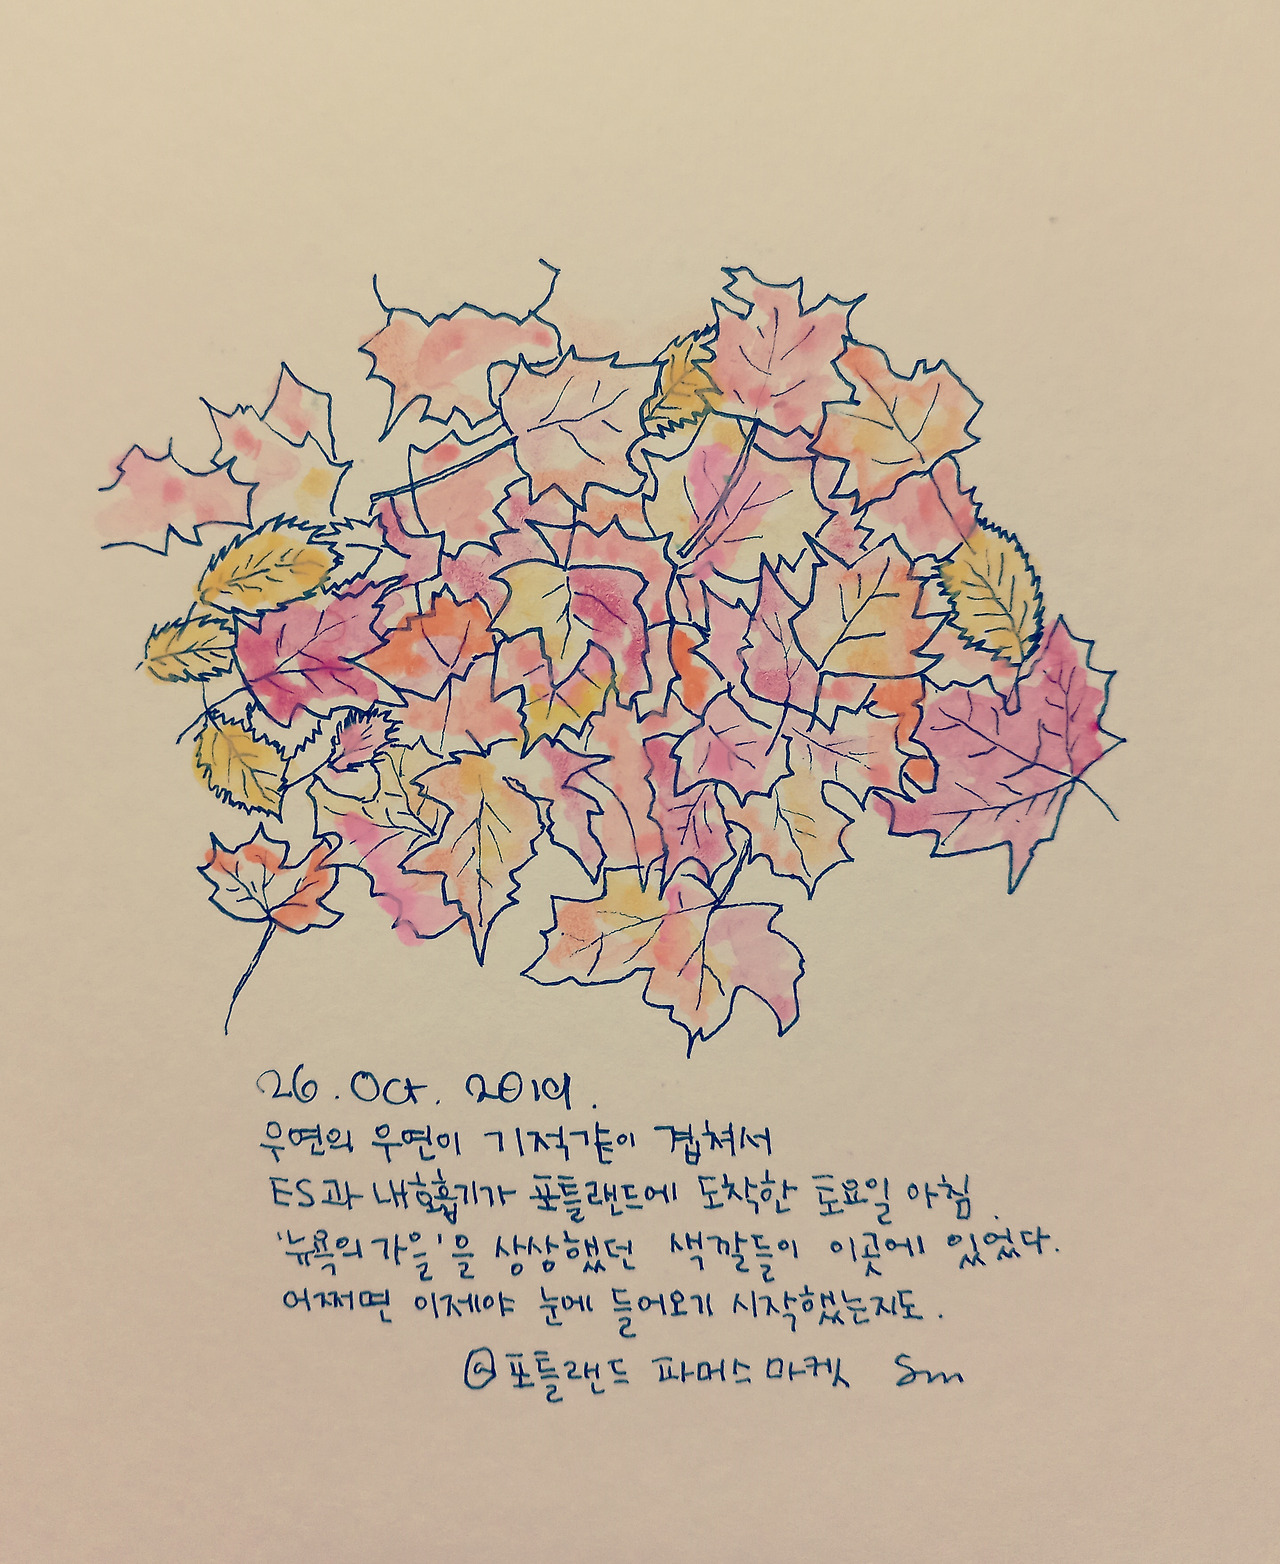 26. Oct. 2019.
우연의 우연이 기적같이 겹쳐서
ES과 내 호흡기가 포틀랜드에 도착한 토요일 아침.
'뉴욕의 가을'을 상상했던 색깔들이 이곳에 있었다.
어쩌면 이제야 눈에 들어오기 시작했는지도.
@포틀랜드 파머스마켓 Sm